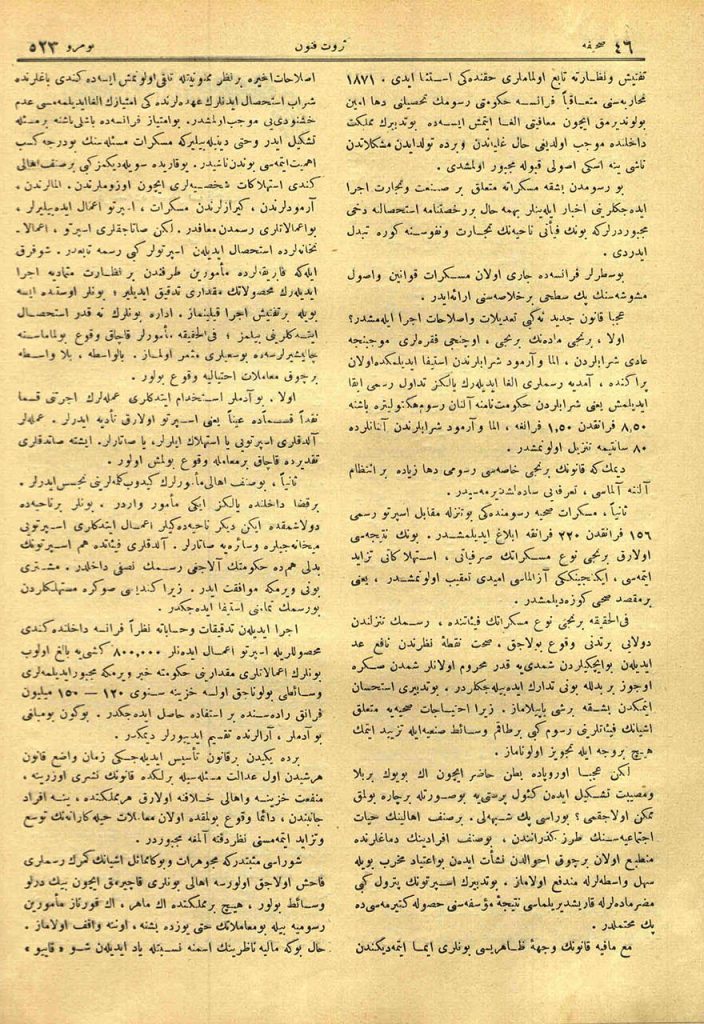 ٤٦ صحیفه
ثروت فنون
نومرو ٥٢٣
تفتیش ونظارته تابع اولماملری حقنده‌کی استثنا ایدی . ١٨٧١
محاربه‌سنی متعاقباً فرانسه حکومتی رسومك تحصیلنی دها امین
بولوندیرمق ایچون معافیتی الغا ایتمش ایسه‌ده بوتدبیرك مملکت
داخلنده موجب اولدیغی حال غلیاندن وبرده تولدایدن مشکلاتدن
ناشی ینه اسکی اصولی قبوله مجبور اولمشدی .
بو رسومدن بشقه مسکراته متعلق بر صنعت وتجارت اجرا
ایده‌جکلرینی اخبار ایله‌ینلر بهمه حال بررخصتنامه استحصالنه دخی
مجبوردرلرکه بونك فیأتی ناحیه‌نك تجارت ونفوسنه کوره تبدل
ایدردی .
بوسطرلر فرانسه‌ده جاری اولان مسکرات قوانین واصول
مشوشه‌سنك پك سطحی برخلاصه‌سنی ارائه‌ایدر .
عجبا قانون جدید نه‌کبی تعدیلات واصلاحات اجرا ایله‌مشدر؟
اولا ، برنجی ماده‌نك برنجی ، اوچنجی فقره‌لری موجبنجه
عادی شرابلردن ، الما وآرمود شرابلرندن استیفا ایدیلمکده‌اولان
پراکنده ، آمدیه رسملری الغا ایدیله‌رك یالکز تداول رسمی ابقا
ایدیلمش یعنی شرابلردن حکومت‌نامنه آلنان رسوم هکتولیتره باشنه
٨,٥٠ فرانقدن ١,٥٠ فرانغه ، الما وآرمود شرابلرندن آنانلرده
٨٠ سانتیمه تنزیل اولونمشدر .
دیمك‌که قانونك برنجی خاصه‌سی رسومی دها زیاده برانتظام
آلتنه آلماسی ، تعرفه‌نی ساده‌لشدیرمه‌سیدر .
ثانیاً ، مسکرات صحیه رسومنده‌کی بوتنزله مقابل اسپرتو رسمی
١٥٦ فرانقدن ٢٢٠ فرانقه ابلاغ ایدیلمشدر . بونك نتیجه‌سی
اولارق برنجی نوع مسکراتك صرفیاتی ، استهلاکاتی تزاید
ایتمه‌سی ، ایکنجینککی آزالماسی امیدی تعقیب اولونمشدر ، یعنی
برمقصد صحی کوزه‌دیلمشدر .
فی‌الحقیقه برنجی نوع مسکراتك فیئاتنده ، رسمك تنزلندن
دولایی برتدنی وقوع بولاجق ، صحت نقطهٔ نظرندن نافع عد
ایدیلن بوایچکیلردن شمدی‌یه قدر محروم اولانلر شمدن سکره
اوجوز بربدلله بونی تدارك ایده‌بیله‌جکلردر ، بوتدبیری استحسان
ایتمکدن بشقه برشی یاپیلاماز . زیرا احتیاجات صحیه‌یه متعلق
اشیانك فیئاتلرینی رسوم کبی برطاقم وسائط صنعیه‌ایله تزیید ایتمك
هیچ بروجه ایله تجویز اولوناماز .
لکن عجبا اوروپاده بطن حاضر ایچون اك بویوك بربلا
ومصیبت تشکیل ایدن کئول پرستی‌یه بوصورتله برچاره بولمق
ممکن اولاجقمی ؟ بوراسی پك شبهه‌لی . برصنف اهالینك حیات
اجتماعیه‌سنك طرز کذرانندن ، بوصنف افرادینك دماغلرنده
منطبع اولان برچوق احوالدن نشأت ایدن بواعتیاد مخرب بویله
سهل واسطه‌لرله مندفع اولاماز . بوتدبیرك اسپرتونك پترول کبی
مضر ماده‌لرله قاریشدیریلماسی نتیجهٔ مؤسفه‌سنی حصوله کتیرمه‌سی‌ده
پك محتملدر .
مع مافیه قانونك وجههٔ ظاهریسی بونلری ایما ایتمه‌دیکندن
اصلاحات اخیره برنظر ممنونیتله تلقی اولونمش ایسه‌ده کندی باغلرنده
شراب استحصال ایدنلرك عهده‌لرنده‌کی امتیازك الغا ایدیلمه‌مسی عدم
خشنودی‌یی موجب اولمشدر. بوامتیاز فرانسه‌ده باشلی باشنه برمسئله
تشکیل ایدر وحتی دینیله‌بیلیرکه مسکرات مسئله‌سنك بودرجه کسب
اهمیت ایتمه‌سی بوندن ناشیدر . یوقاریده سویله‌دیکمز کبی برصنف اهالی
کندی استهلاکات شخصیه‌لری ایچون اوزوملرندن . المالرندن .
آرمودلرندن ، کیرازلرندن مسکرات ، اسپرتو اعمال ایده‌بیلیرلر ،
بواعمالاتلری رسمدن معافدر . لکن صاتاجقلری اسپرتو ، اعمالا-
تخانه‌لرده استحصال ایدیلن اسپرتولر کبی رسمه تابعدر . شوفرق
ایله‌که فابریقه‌لرده مأمورین طرفندن برنظارت متمادیه اجرا
ایدیله‌رك محصولاتك مقداری تدقیق ایدیلیر ؛ بونلر اوستنده ایسه
بویله برتفتیش اجرا قیلینماز . اداره بونلرك نه قدر استحصال
ایتدکلرینی بیلمز ؛ فی‌الحقیقه مأمورلر قاچاق وقوع بولماماسنه
چالیشیرلرسه‌ده بوسعیلری مثمر اولماز . بالواسطه ، بلا واسطه
برچوق معاملات احتیالیه وقوع بولور .
اولا . بوآدملر استخدام ایتدکلری عمله‌لرك اجرتنی قسما
نقداً قسماًده عیناً یعنی اسپرتو اولارق تأدیه ایدرلر . عمله‌لر
آلدقلری اسپرتویی یا استهلاك ایلرلر، یا صاتارلر. ایشته صاتدقلری
تقدیرده قاچاق برمعامله وقوع بولمش اولور .
ثانیاً ، بوصنف اهالی مأمورلرك کیدوب‌کله‌لرینی تجسس ایدرلر .
برقضا داخلنده یالکز ایکی مأمور واردر . بونلر برناحیه‌ده
دولاشمقده ایکن دیکر ناحیه‌ده‌کیلر اعمال ایتدکلری اسپرتویی
میخانه‌جیلره وسائره‌یه صاتارلر . آلدقلری فیئاته هم اسپرتونك
بدلی هم‌ده حکومتك آلاجغی رسمك نصفی داخلدر . مشتری
بونی ویرمکه موافقت ایدر . زیرا کندیسی صوکره مستهلکلردن
بورسمك تمامنی استیفا ایده‌جکدر .
اجرا ایدیلن تدقیقات وحساباته نظراً فرانسه داخلنده کندی
محصوللریله اسپرتو اعمال ایدنلر ٨٠٠,٠٠٠ کشی‌یه بالغ اولوب
بونلرك اعمالاتلری مقدارینی حکومته خبر ویرمکه مجبورایدیلمه‌لری
وسائطلی بولوناجق اولسه خزینه سنوی ١٢٠ — ١٥٠ میلیون
فرانق راده‌سنده بر استفاده حاصل ایده‌جکدر . بوکون بومبلغی
بوآدملر ، آرالرنده تقسیم ایدییورلر دیمکدر .
برده یکیدن برقانون تأسیس ایدیله‌جکی زمان واضع قانون
هرشیدن اول عدالت مسئله‌سیله برلکده قانونك نشری اوزرینه .
منفعت خزینه واهالی خلافنه اولارق هرمملکتده ، ینه افراد
جانبندن ، دائما وقوع بولمقده اولان معاملات حیله‌کارانه‌نك توسع
وتزاید ایتمه‌مسنی نظردقته آلمغه مجبوردر .
شوراسی مثبتدرکه مجوهرات وبوکاممائل اشیانك کمرك رسملری
فاحش اولاجق اولورسه اهالی بونلری قاچیرمق ایچون بیك درلو
وسائط بولور ، هیچ برمملکتده اك ماهر ، اك قورناز مأمورین
رسومیه بیله بومعاملاتك حتی یوزده بشنه ، اوننه واقف اولاماز .
حال بوکه مالیه ناظرینك اسمنه نسبتله یاد ایدیلن شو « قاییو »